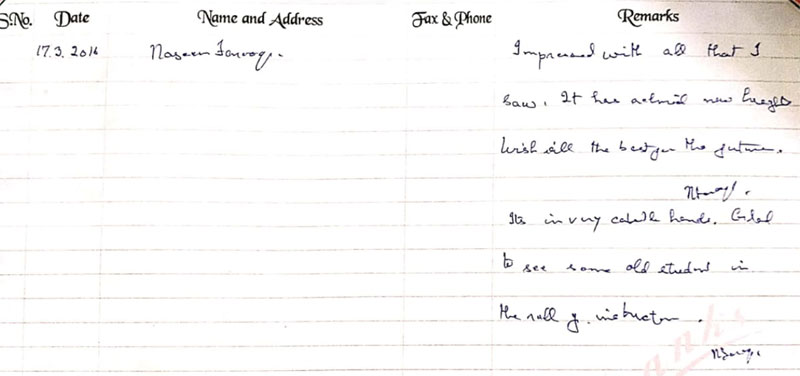 S.No. Date Name and Address Fax & Phone Remarks
17.3.2016 Naseem Farooqi. Impressed with all that I
saw. It has achieved new heights
Wish all the best for the future.
Its in very capable hands. Glad
to see some old student in
the roll of instructor.